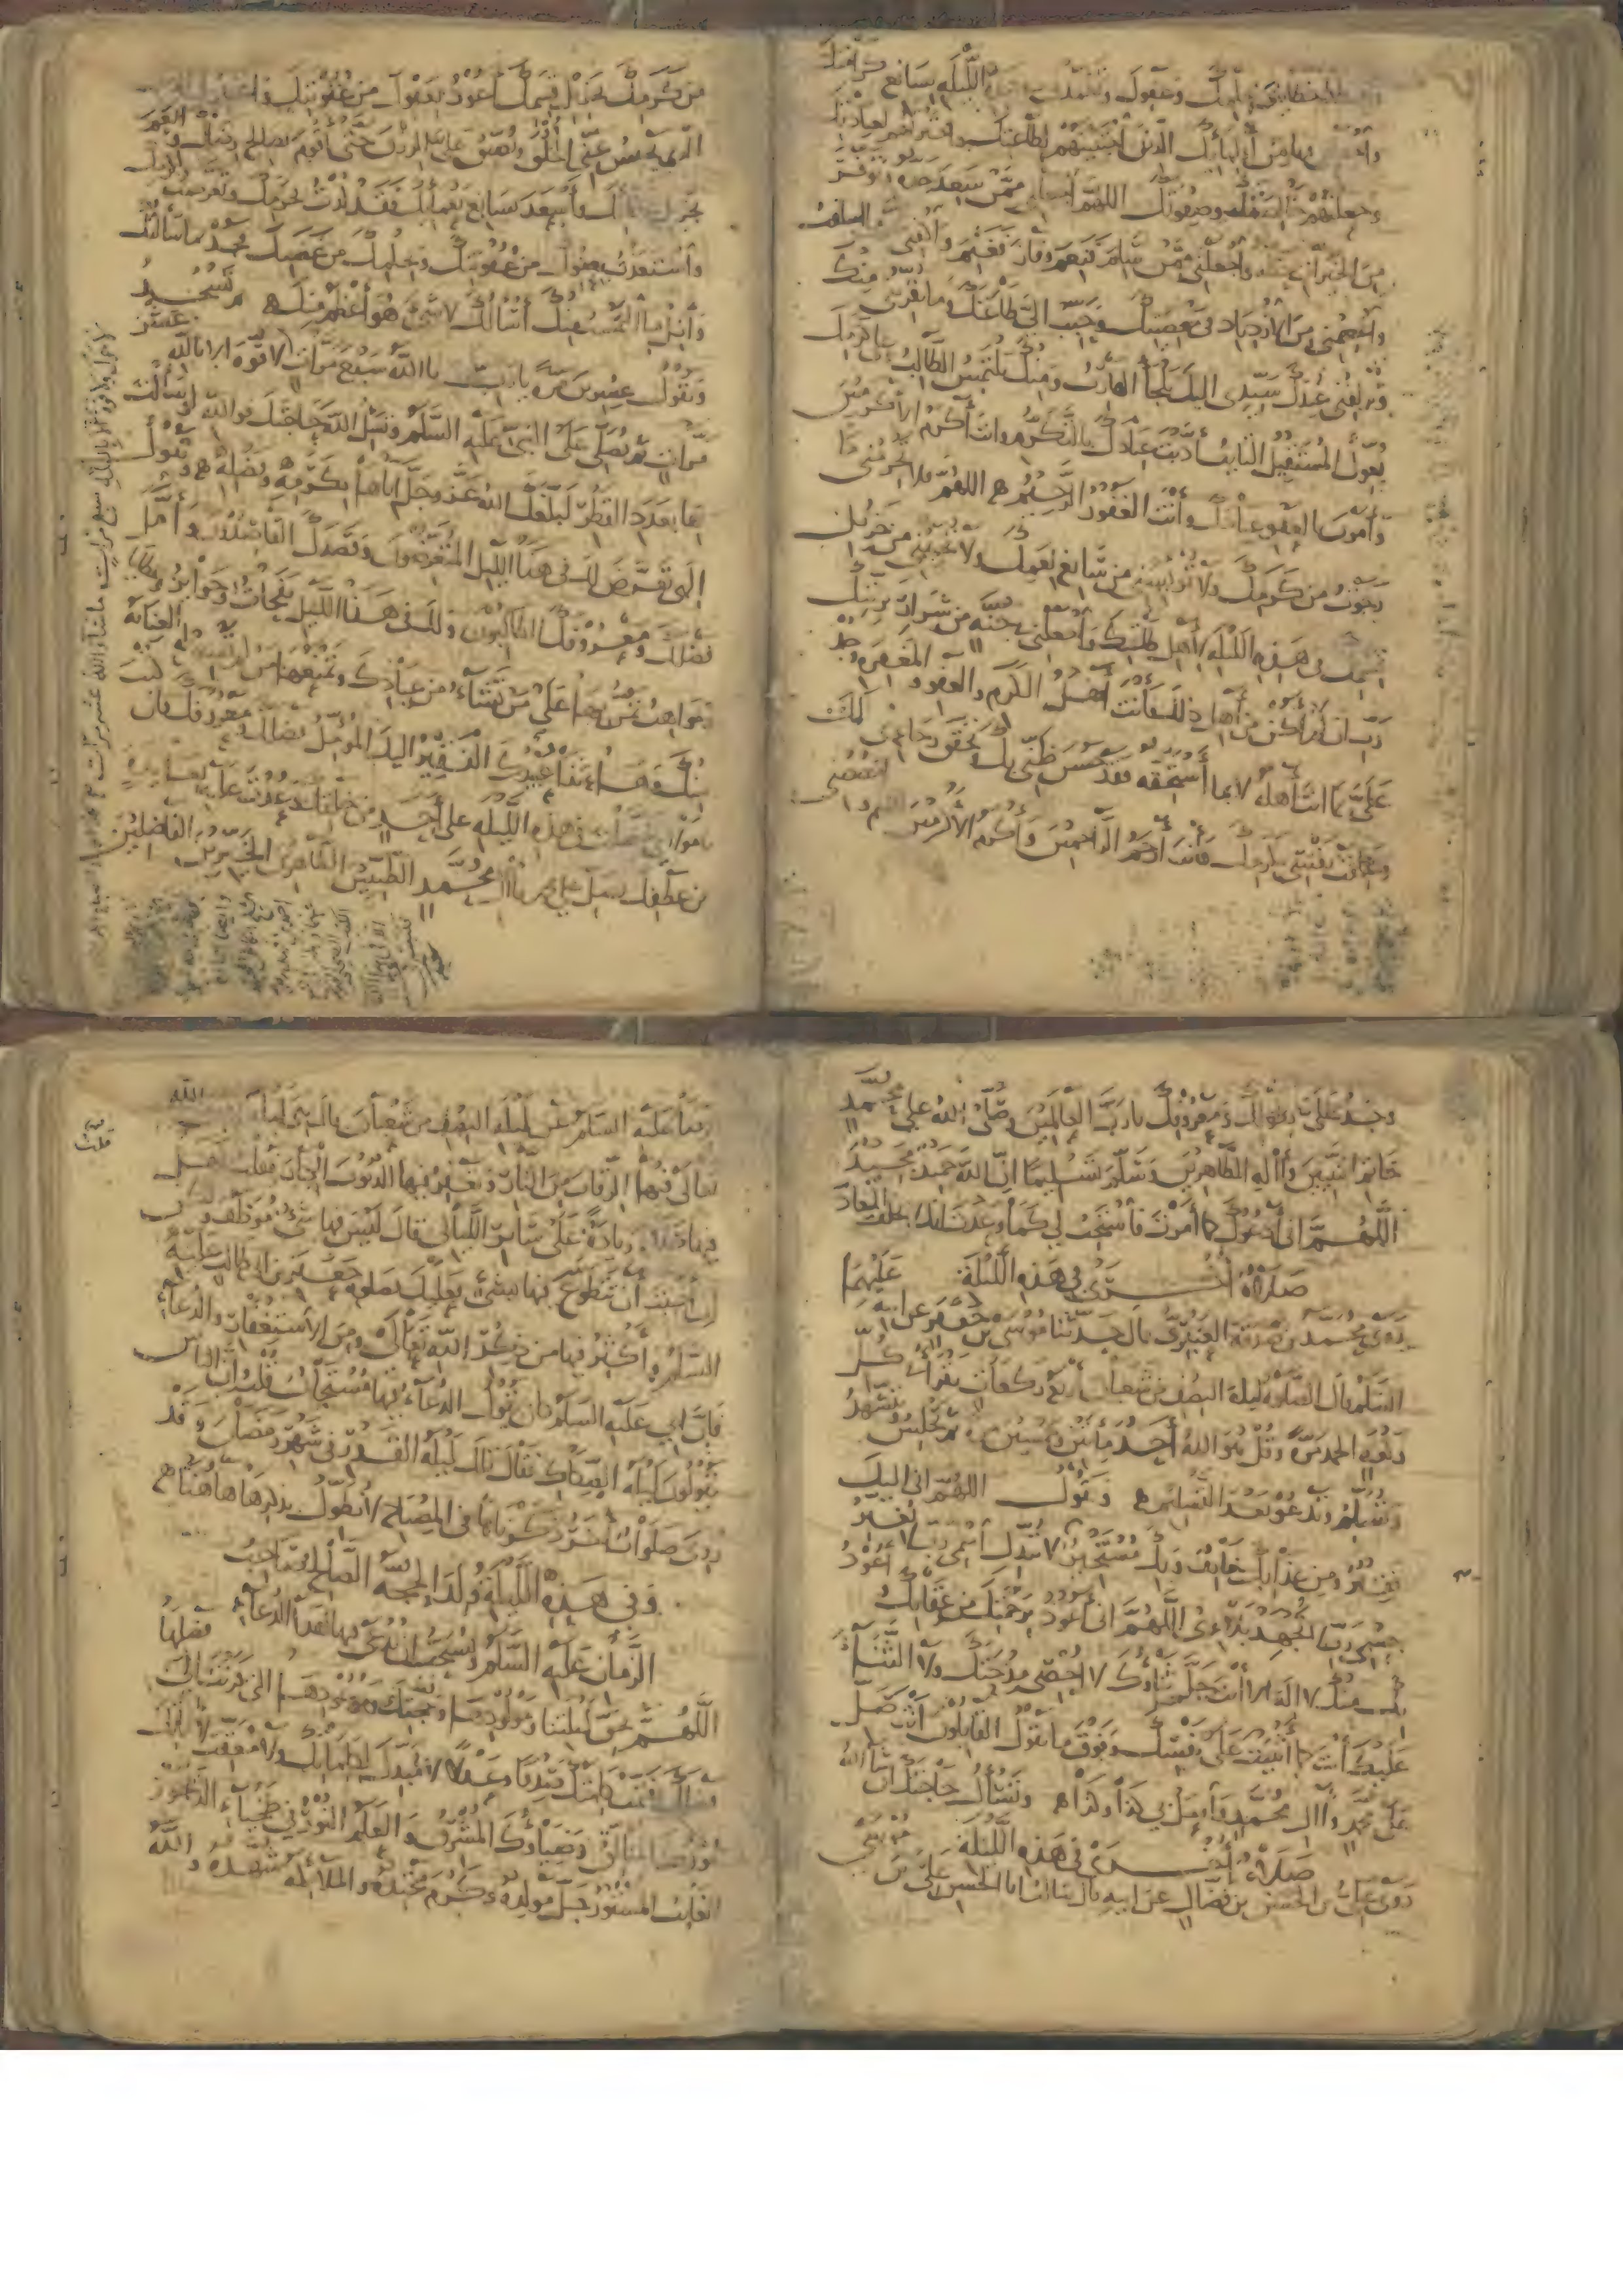 وعفوك وتغمدك الليلة بسابغ كرامتك
من أوليائك الذين اجتبيتهم لطاعتك واخترتهم لعبادتك
وجعلتهم وصفوتك اللهم اجعلني ممن سعد جده وتوفر
من الخيرات واجعلني ممن سلم فنعم وفاز فغنم واكفني
واعصمني من الازدياد في معصيتك وحبب الي طاعتك وما يقربني منك
ويزلفني عندك سيدي اليك يلجأ الهارب ومنك يلتمس الطالب وعلى كرمك
يعول المستقيل التائب أدبت عبادك بالتكرم وأنت أكرم الأكرمين
وأمرت بالعفو عبادك وأنت الغفور الرحيم اللهم فلا تحرمني ما
رجوت من كرمك ولا تؤيسني من سابغ نعمك ولا تخيبني من جزيل
قسمك في هذه الليلة لأهل طاعتك واجعلني في جنة من شرار بريتك
رب ان لم أكن من أهل ذلك فأنت أهل الكرم والعفو والمغفرة وجد
علي بما أنت أهله لا بما أستحقه فقد حسن ظني بك وتحقق رجائي لك
وعلقت نفسي بكرمك فأنت أرحم الراحمين وأكرم الأكرمين اللهم واخصصني
من كرمك بجزيل قسمك وأعوذ بعفوك من عقوبتك واغفر لي الذنب
الذي يحبس عني الخلق ويضيق علي الرزق حتى أقوم بصالح رضاك وأنعم
بجزيل عطائك وأسعد بسابغ نعمائك فقد لذت بحرمك وتعرضت لكرمك
واستعذت بعفوك من عقوبتك وبحلمك من غضبك فجد بما سألتك
وأنل ما التمست منك أسألك لا شيء هو أعظم منك ثم تسجد
وتقول عشرين مرة يا رب يا الله سبع مرات لا قوة الا بالله عشر
مرات ثم تصلي على النبي عليه السلم وتسل الله حاجتك فوالله لو سألت
بها بعدد القطر لبلغك الله عز وجل اياها بكرمه وفضله وتقول
الهي تعرض لك في هذا الليل المتعرضون وقصدك القاصدون وأمل
فضلك ومعروفك الطالبون ولك في هذا الليل نفحات وجوائز وعطايا
ومواهب تمن بها على من تشاء من عبادك وتمنعها من لم تسبق له العناية
منك وها أنا ذا عبيدك الفقير اليك المؤمل فضلك ومعروفك فان
كنت يا مولاي تفضلت في هذه الليلة على أحد من خلقك وعدت عليه بعائدة
من عطفك فصل على محمد وآل محمد الطيبين الطاهرين الخيرين الفاضلين
وجد علي بطولك ومعروفك يا رب العالمين وصلى الله على محمد
خاتم النبيين وآله الطاهرين وسلم تسليما ان الله حميد مجيد
اللهم اني أدعوك كما أمرت فاستجب لي كما وعدت انك لا تخلف الميعاد
صلاة أخرى في هذه الليلة
روى محمد بن صدقة العنبري قال حدثنا موسى بن جعفر عن أبيه عليهما
السلم قال الصلوة ليلة النصف من شعبان أربع ركعات تقرأ في كل
ركعة الحمد مرة وقل هو الله أحد مأتين وخمسين مرة ثم تجلس وتتشهد
وتسلم وتدعو بعد التسليم وتقول اللهم اني اليك
فقير ومن عذابك خائف وبك مستجير لا تبدل اسمي رب لا تغير
جسمي رب لا تجهد بلائي اللهم اني أعوذ برحمتك من عقابك أعوذ
بك منك لا اله الا أنت جل ثناؤك لا أحصي مدحتك ولا الثناء
عليك أنت كما أثنيت على نفسك وفوق ما يقول القائلون أنت صل
على محمد وآل محمد وافعل بي كذا وكذا وتسأل حاجتك ان شاء الله
صلاة أخرى في هذه الليلة
روى علي بن الحسن بن فضال عن أبيه قال سألت أبا الحسن علي بن موسى
الرضا عليه السلم عن ليلة النصف من شعبان قال هي ليلة الله
تعالى فيها الرقاب من النار ويغفر فيها الذنوب الكبار فقلت هل
فيها صلاة زيادة على سائر الليالي قال ليس فيها شيء موظف ولكن
ان أحببت أن تتطوع فيها بشيء فعليك بصلوة جعفر بن أبي طالب عليه
السلم وأكثر فيها من ذكر الله تعالى ومن الاستغفار والدعاء
فان أبي عليه السلم كان يقول الدعاء فيها مستجاب قلت ان الناس
يقولون ليلة الصكاك فقال تلك ليلة القدر في شهر رمضان وقد
روى صلوات أخر ذكرناها في المصباح لا نطول بذكرها هاهنا
وفي هذه الليلة ولد الحجة الصالح صاحب
الزمان عليه السلم ويستحب أن يدعى فيها بهذا الدعاء
اللهم بحق ليلتنا ومولودها وحجتك وموعودها التي قرنت الى فضلها
فضلك فتمت كلمتك صدقا وعدلا لا مبدل لكلماتك ولا معقب لآياتك
نورك المتألق وضياؤك المشرق والعلم النور في طخياء الديجور
الغائب المستور جل مولده وكرم محتده والملائكة شهده والله